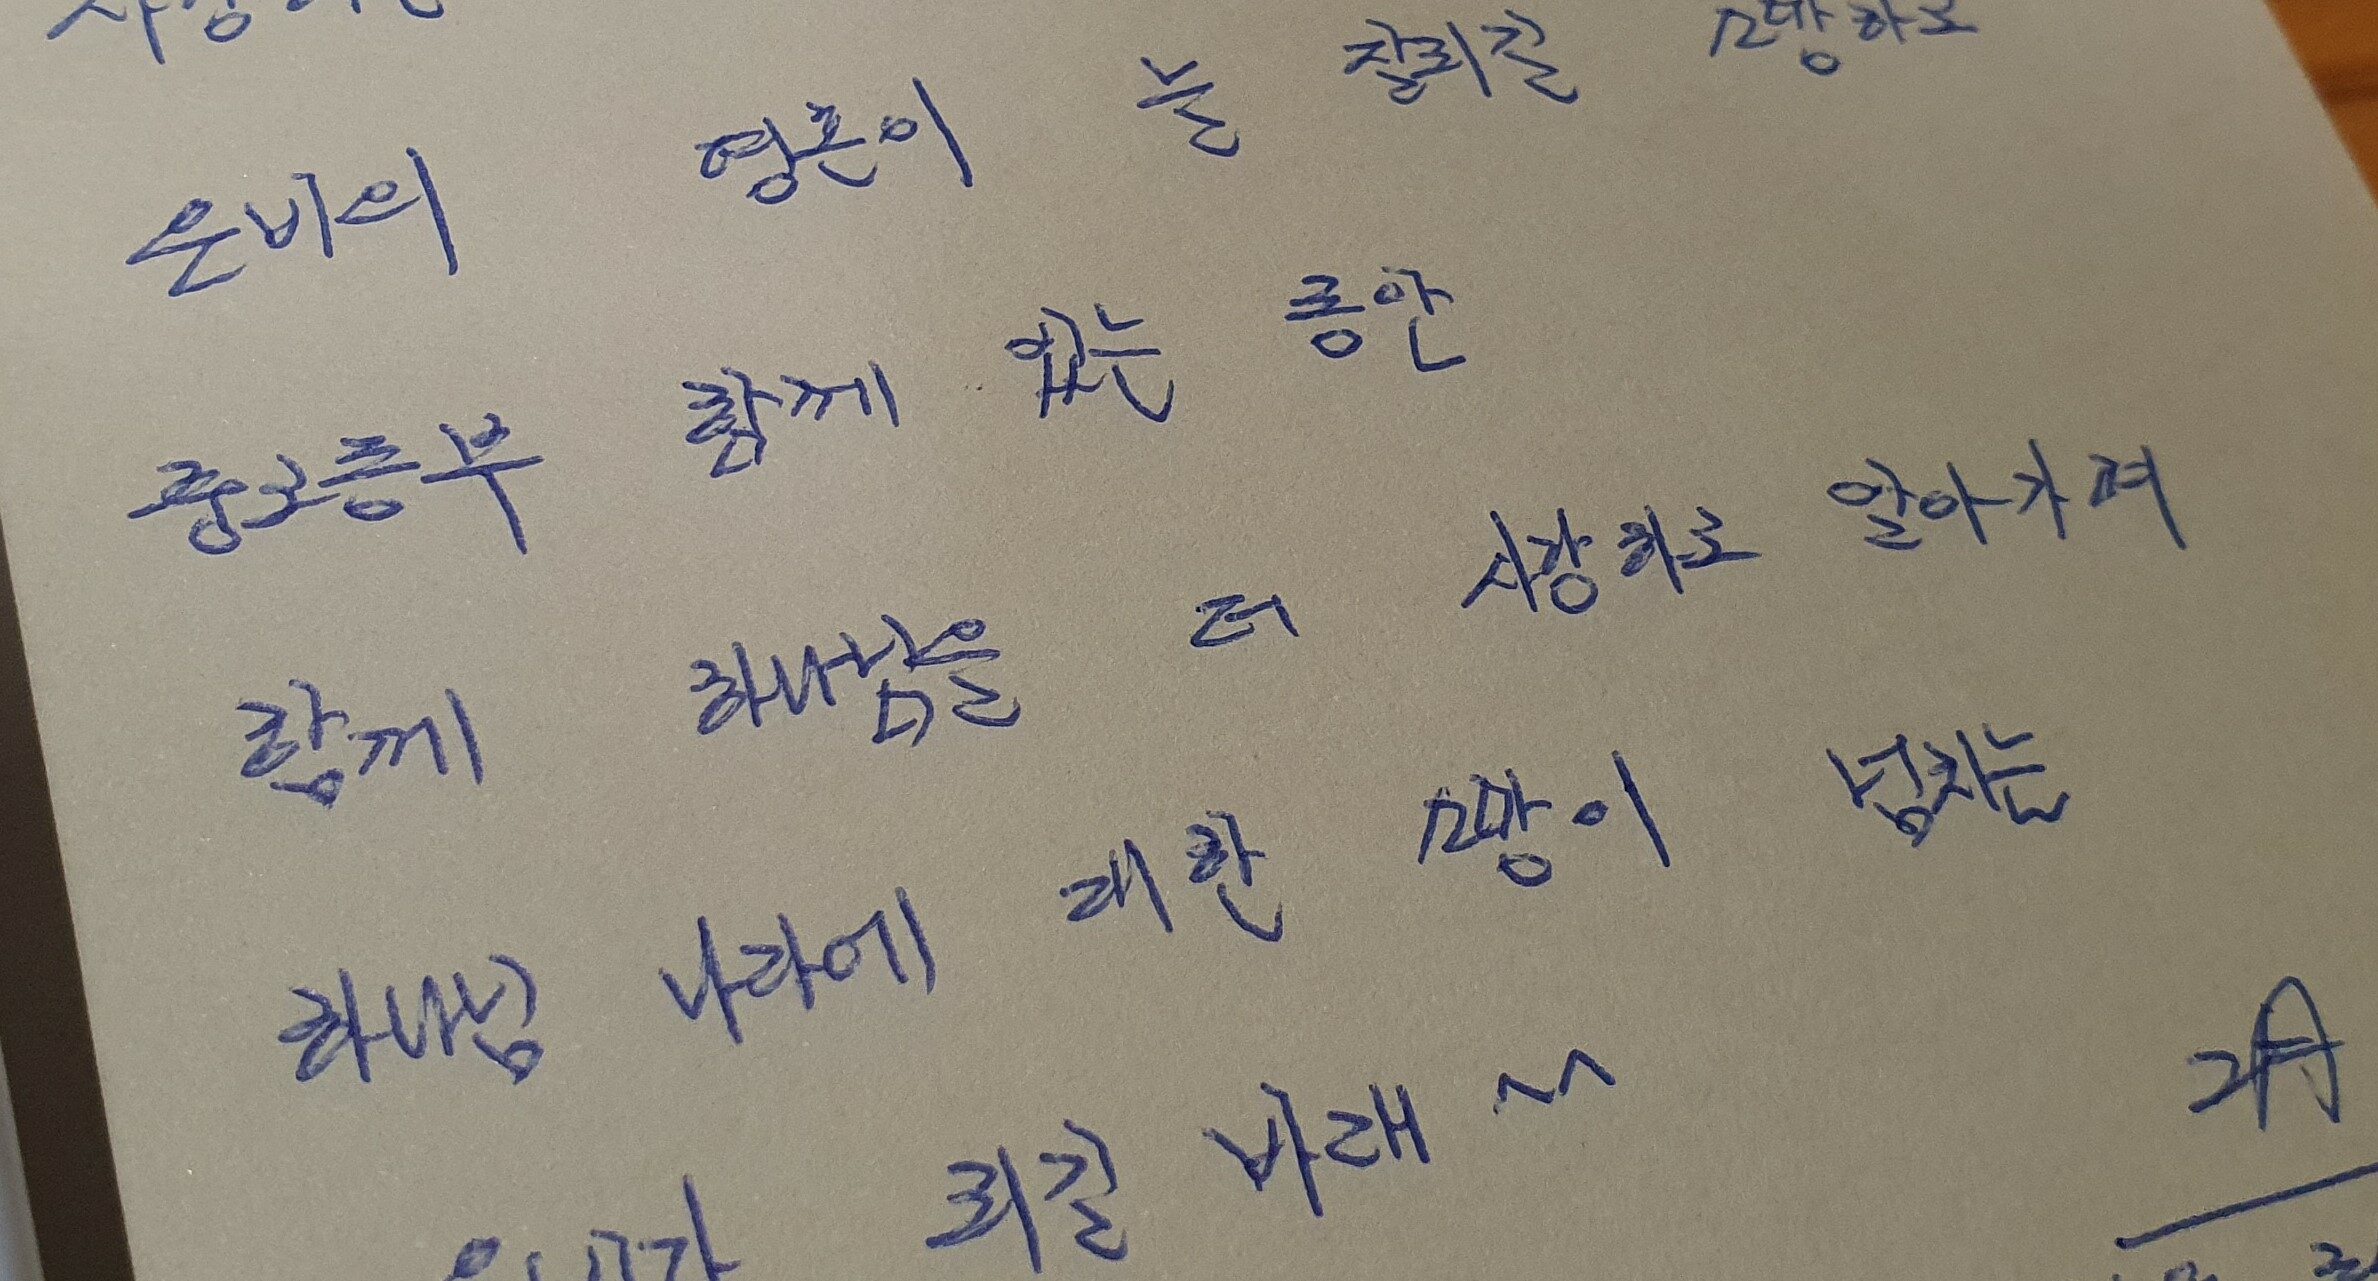 은비의 영혼이 늘 잘되길 소망하고
중고등부 함께 있는 동안
함께 하나님을 더 사랑하고 알아가며
하나님 나라에 대한 소망이 넘치는
은비가 되길 바래 ^^